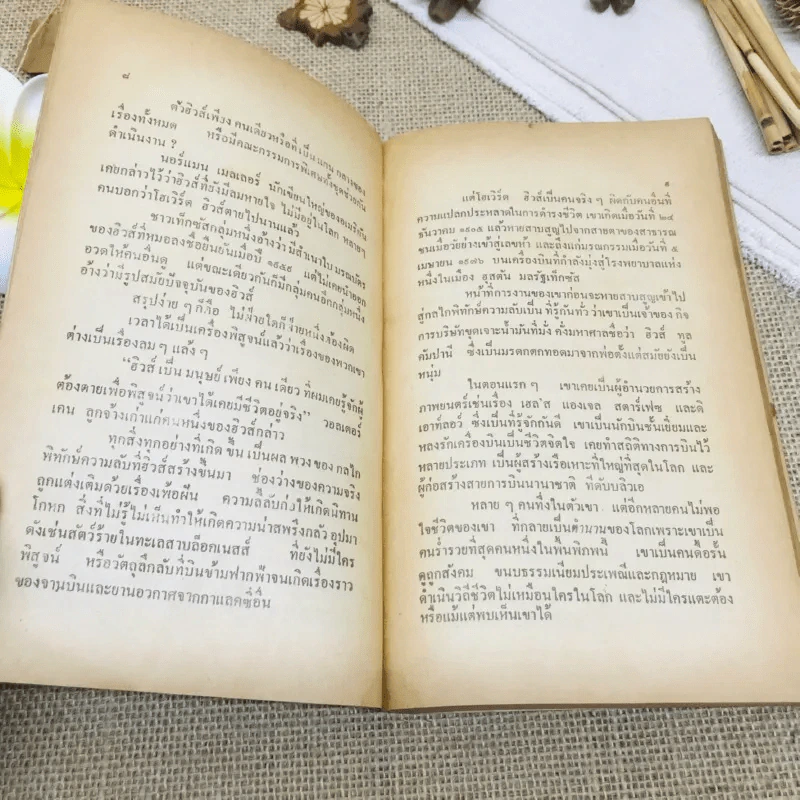 ๘
ตัวฮิวส์เพียง คนเดียวหรือที่เป็นแกน กลางของ
เรื่องทั้งหมด หรือมีคณะกรรมการพิเศษทั้งชุดช่วยกัน
ดำเนินงาน ?
นอร์แมน เมลเลอร์ นักเขียนใหญ่ของอเมริกัน
เคยกล่าวไว้ว่าฮิวส์ที่ยังมีลมหายใจ ไม่มีอยู่ในโลก หลายๆ
คนบอกว่าโฮเวิร์ด ฮิวส์ตายไปนานแล้ว
ชาวเท็กซัสกลุ่มหนึ่งอ้างว่า มีสำเนาใบ มรณบัตร
ของฮิวส์ที่หมอลงชื่อยืนยันเมื่อปี ๑๙๕๙ แต่ไม่เคยนำออก
อวดให้คนอื่นดู แต่ขณะเดียวกันก็มีกลุ่มคนอีกกลุ่มหนึ่ง
อ้างว่ามีรูปสมัยปัจจุบันของฮิวส์
สรุปง่าย ๆ ก็คือ ไม่ฝ่ายใดก็ฝ่ายหนึ่งต้องผิด
เวลาได้เป็นเครื่องพิสูจน์แล้วว่าเรื่องของพวกเขา
ต่างเป็นเรื่องลม ๆ แล้ง ๆ
"ฮิวส์ เป็น มนุษย์ เพียง คน เดียว ที่ผมเคยรู้จักผู้
ต้องตายเพื่อพิสูจน์ว่าเขาได้เคยมีชีวิตอยู่จริง" วอลเตอร์
เคน ลูกจ้างเก่าแก่คนหนึ่งของฮิวส์กล่าว
ทุกสิ่งทุกอย่างที่เกิด ขึ้น เป็นผล พวง ของ กลไก
พิทักษ์ความลับที่ฮิวส์สร้างขึ้นมา ช่องว่างของความจริง
ถูกแต่งเติมด้วยเรื่องเพ้อฝัน ความลี้ลับก่อให้เกิดนิทาน
โกหก สิ่งที่ไม่รู้ไม่เห็นทำให้เกิดความน่าสพรึงกลัว อุปมา
ดังเช่นสัตว์ร้ายในทะเลสาบล็อกเนสส์ ที่ยังไม่มีใคร
พิสูจน์ หรือวัตถุลึกลับที่บินข้ามฟากฟ้าจนเกิดเรื่องราว
ของจานบินและยานอวกาศจากกาแลคซี่อื่น
๙
แต่โฮเวิร์ด ฮิวส์เป็นคนจริง ๆ ผิดกับคนอื่นที่
ความแปลกประหลาดในการดำรงชีวิต เขาเกิดเมื่อวันที่ ๒๔
ธันวาคม ๑๙๐๕ แล้วหายสาบสูญไปจากสายตาของสาธารณ
ชนเมื่อวัยย่างเข้าสู่เลขห้า และถึงแก่มรณกรรมเมื่อวันที่ ๕
เมษายน ๑๙๗๖ บนเครื่องบินที่กำลังมุ่งสู่โรงพยาบาลแห่ง
หนึ่งในเมือง ฮุสตัน มลรัฐเท็กซัส
หน้าที่การงานของเขาก่อนจะหายสาบสูญเข้าไป
สู่กลไกพิทักษ์ความลับเป็น ที่รู้กันทั่ว ว่าเขาเป็นเจ้าของ กิจ
การบริษัทขุดเจาะน้ำมันที่มั่ง คั่งมหาศาลชื่อว่า ฮิวส์ ทูล
คัมปานี ซึ่งเป็นมรดกตกทอดมาจากพ่อตั้งแต่สมัยยังเป็น
หนุ่ม
ในตอนแรก ๆ เขาเคยเป็นผู้อำนวยการสร้าง
ภาพยนตร์เช่นเรื่อง เฮล'ส แองเจล สคาร์เฟซ และดิ
เอาท์ลอว์ ซึ่งเป็นที่รู้จักกันดี เขาเป็นนักบินชั้นเยี่ยมและ
หลงรักเครื่องบินเป็นชีวิตจิตใจ เคยทำสถิติทางการบินไว้
หลายประเภท เป็นผู้สร้างเรือเหาะที่ใหญ่ที่สุดในโลก และ
ผู้ก่อสร้างสายการบินนานาชาติ ทีดับบลิวเอ
หลาย ๆ คนทึ่งในตัวเขา แต่อีกหลายคนไม่พอ
ใจชีวิตของเขา ที่กลายเป็นตำนานของโลกเพราะเขาเป็น
คนร่ำรวยที่สุดคนหนึ่งในพื้นพิภพนี้ เขาเป็นคนดื้อรั้น
ดูถูกสังคม ขนบธรรมเนียมประเพณีและกฎหมาย เขา
ดำเนินวิถีชีวิตไม่เหมือนใครในโลก และไม่มีใครแตะต้อง
หรือแม้แต่พบเห็นเขาได้